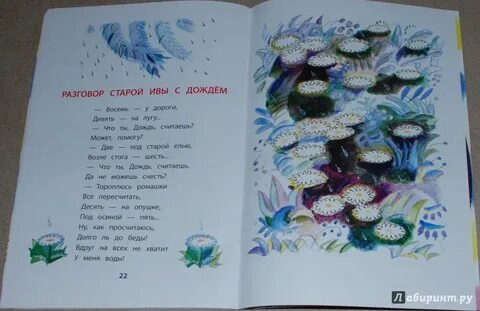 РАЗГОВОР СТАРОЙ ИВЫ С ДОЖДЁМ
— Восемь — у дороги,
Девять — на лугу...
— Что ты, Дождь, считаешь?
Может, помогу?
— Две — под старой елью,
Возле стога — шесть...
— Что ты, Дождь, считаешь,
Да не можешь счесть?
— Тороплюсь ромашки
Все пересчитать,
Десять — на опушке,
Под осиной — пять...
Ну, как просчитаюсь,
Долго ль до беды!
Вдруг на всех не хватит
У меня воды!
22
Лабиринт.ру